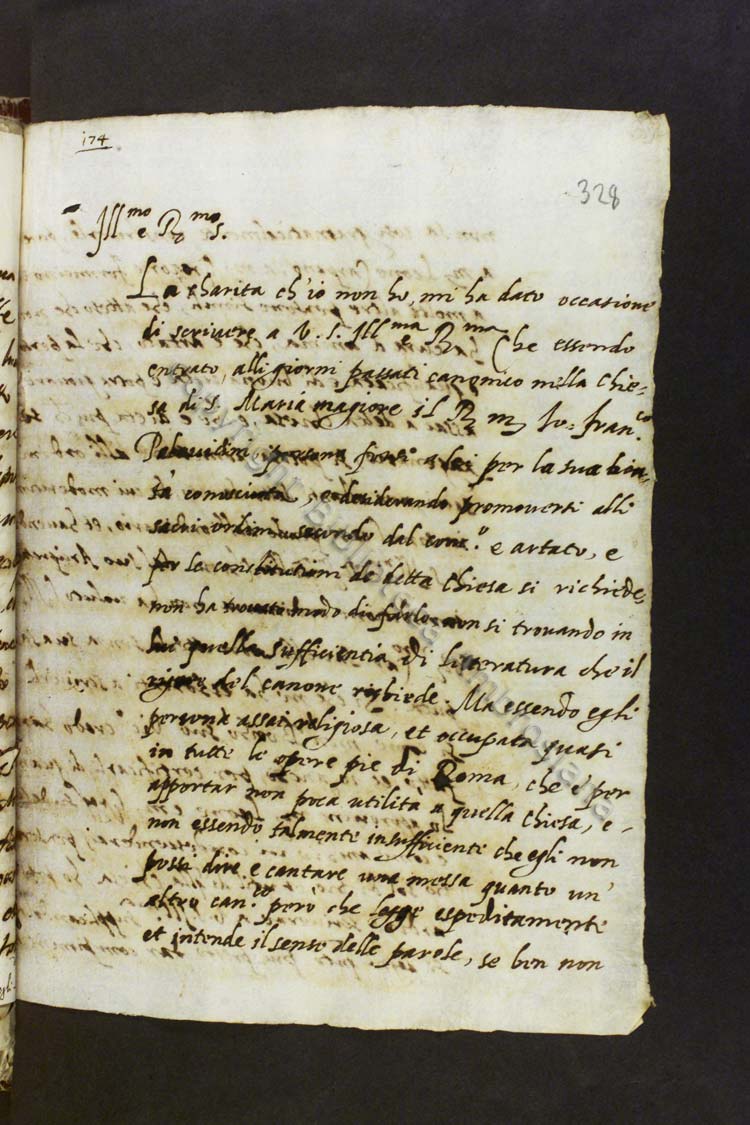 174
328
Ill.mo e R.mo S.
La charita ch'io non ho, mi ha dato occasione
di scrivere a V. S. Ill.ma e R.ma Che essendo
entrato alli giorni passati canonico nella Chie=
sa di S. Maria magiore il R. m. Io: fran.co
Palavicini, persona forsi a lei per la sua bon=
tà conosciuta, e desiderando promoversi alli
sacri ordini secondo dal conc.o e artato, e
per le constitutioni de detta Chiesa si richiede,
non ha trovato modo di farlo non si trovando in
lui quella sufficientia di litteratura che il
rigore del canone richiede. Ma essendo egli
persona assai religiosa, et occupata quasi
in tutte le opere pie di Roma, che è per
apportar non poca utilità a quella Chiesa, e
non essendo talmente insufficiente che egli non
possi dire e cantare una messa quanto un'
altro can.co però che legge espeditamente
et intende il senso delle parole, se ben non